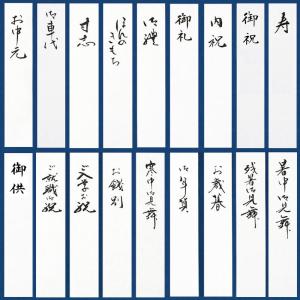 寿
御祝
内祝
御礼
御禮
ほんのきもち
寸志
御車代
お中元
暑中御見舞
残暑御見舞
お歳暮
御年賀
寒中御見舞
お餞別
ご入学お祝
ご就職御祝
御供